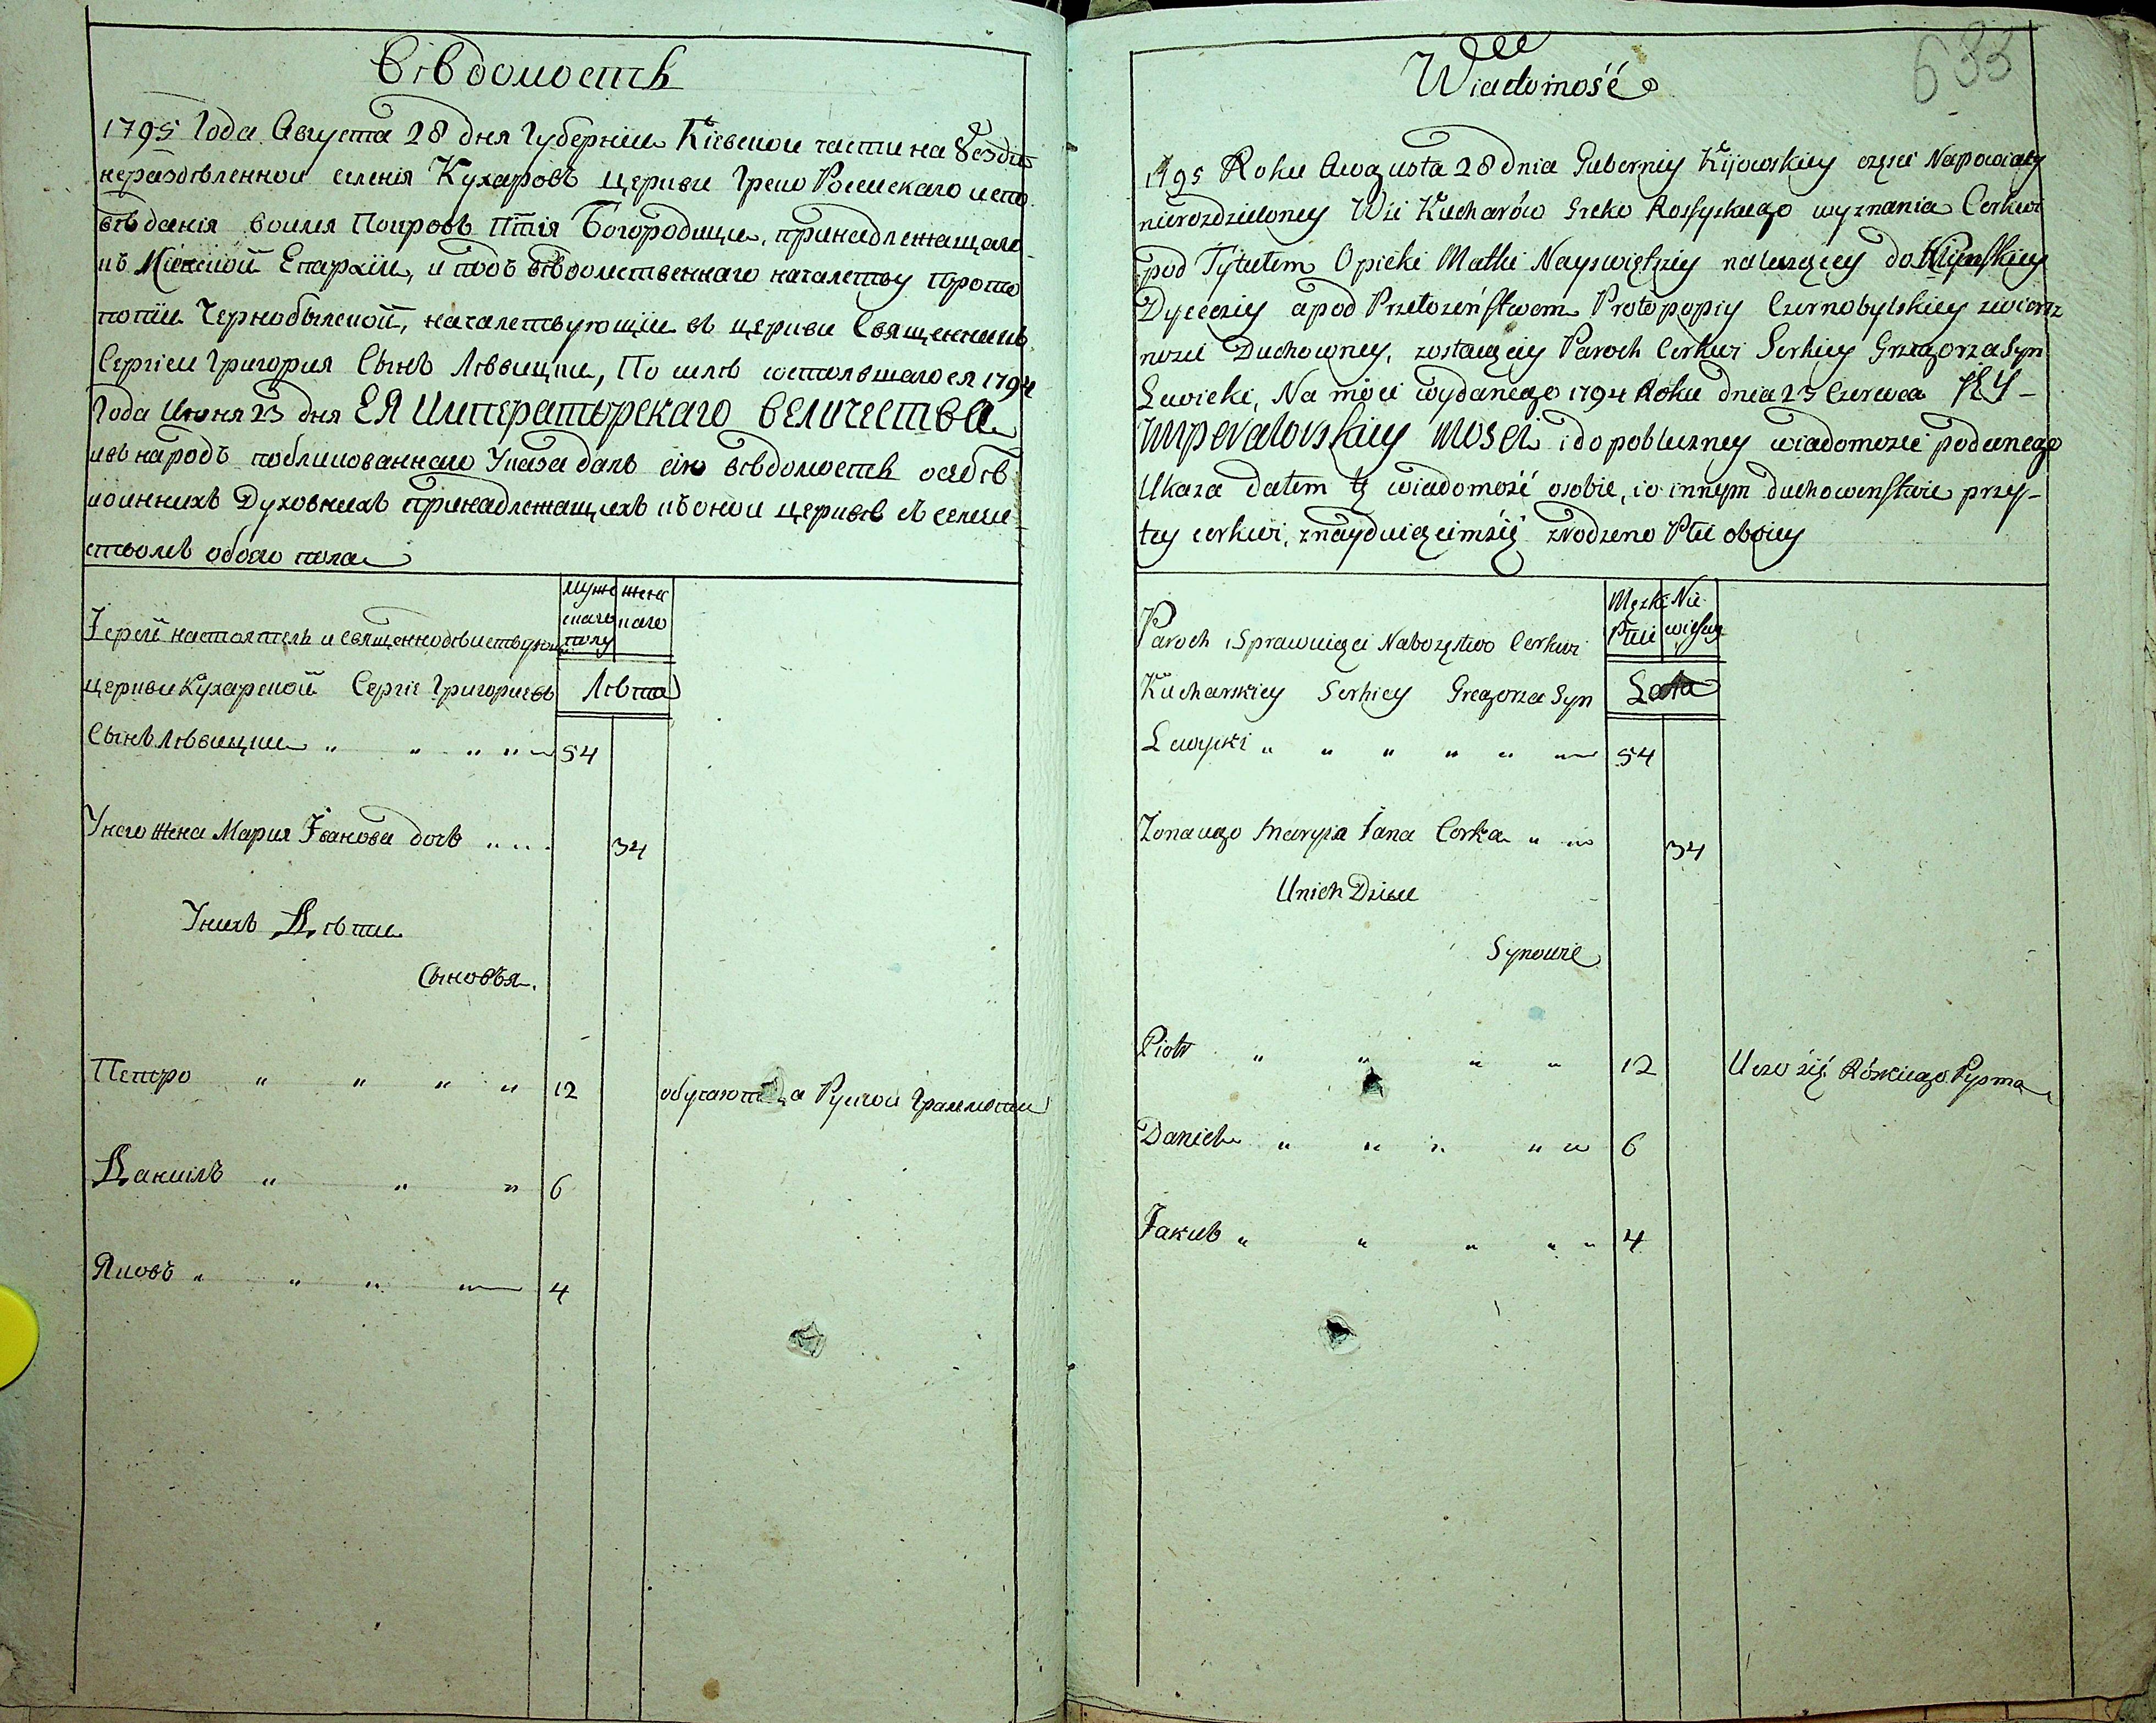 Вѣдомость
1795 Года Августа 28 дня Губерніи Кіевской части на Уезди
нераздѣленной селенія Кухаровъ церкви Греко Россискаго испо
вѣданія воимя Покровъ Пртія Богородици, принадлежащаго
къ Мінской Епархіи, и подъ вѣдомственнаго началству Прото
попіи Чернобылской, началствующій въ церкви Священникъ
Сергіей Григорія Сынъ Лѣвицкій, По силѣ состоявшагося 1794
Года Июня 23 дня ЕЯ Императорскаго величества
ивъ народъ побликованнаго Указа далъ сію вѣдомость осебѣ
иоиннихъ Духовнихъ принадлежащихъ къонои церквѣ съ семей
ствомъ обоего пола
муже женс
скаго каго
полу
Іерей настоятель и священнодѣиствующ
церкви Кухарской Сергіе Григориевъ Лѣта
Сынъ Лѣвицкий " " " " " 54
Унего жена Мария Іванова дочъ " " . 34
Унихъ Дѣти
Сыновъя.
Петро " " " " 12 обучаются Руской Грамоти
Даниілъ " " " 6
Яковъ " " " " 4
633
Wiadomość
1795 Roku Awgusta 28 dnia Guberniy Kijowskiey częsci Napowiaty
nierozdzieloney Wsi Kucharów Greko Rossyskiego wyznania Cerkwi
pod Tytułem Opieki Matki Nayswiętszey należącey do Mijnskiey
Dyecezij a pod Przełożeństwem Protopopiy Czernobylskiey zwierz
nosci Duchowney, zostaięcy Paroch Cerkwi Serhiey Grzegorza Syn
Lewicki, Na mocÿ wydanego 1794 Roku dnia 23 Czerwca JEY -
Imperatorskiey mosci i do publiczney wiadomości podanego
Ukaza dałem tę wiadomość osobie, i o innym duchowenstwie przy-
tey cerkwi, znayduięcimsię zrodzeno Płci oboiey
Męzki Nie
Płci wieśc
Paroch i Sprawuięci Nabożęstwo Cerkwi
Kucharskiey Serhiey Gregorza Syn Lata
Lewycki " " " " " " 54
Zona iego Maryia Jana Corka " " 34
Unich Dzieci
Synowie
Piotr " " " " 12 Uczo się Róskiego Pysma
Daniel " " " " " 6
Jakub " " " " " 4